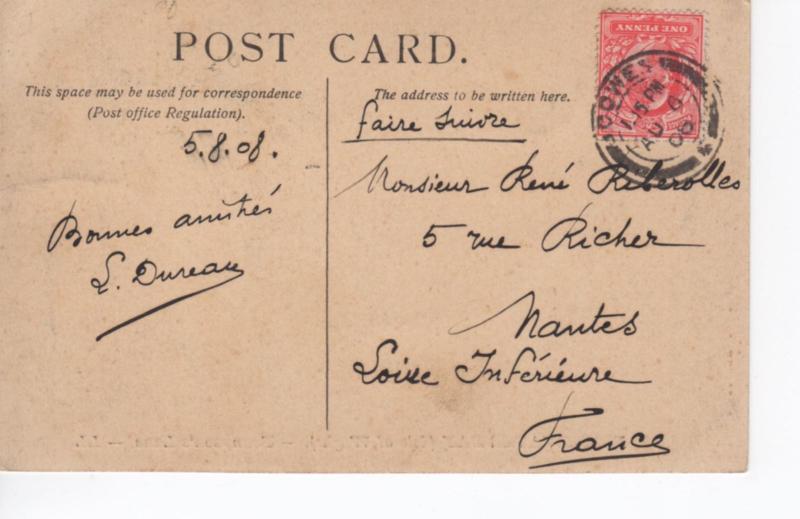 POST CARD.
This space may be used for correspondence
(Post office Regulation).
The address to be written here.
5.8.08.
Bonnes amitiés
L. Dureau
faire suivre
Monsieur René Riberolles
5 rue Richer
Nantes
Loire Inférieure
France
ONE PENNY
COWES
AU
08